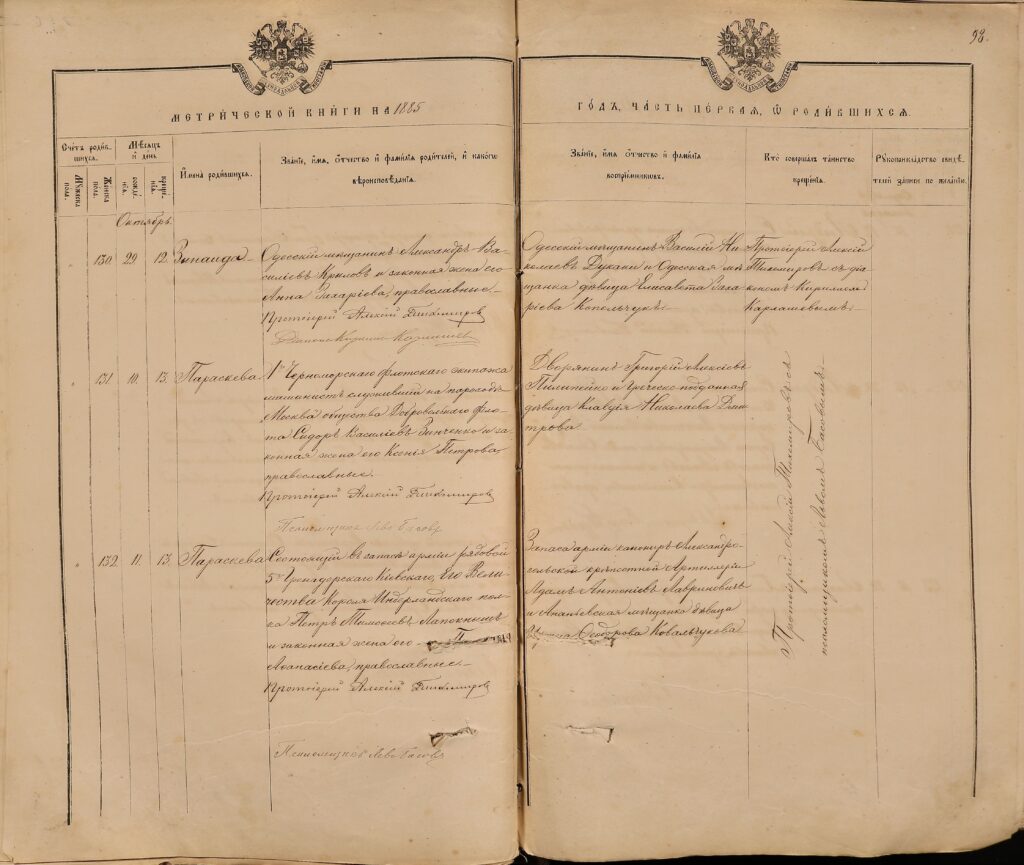 98.
МЕТРИ́ЧЕСКОЙ КНИ́ГИ НА 1885
ГО́ДЪ, ЧА́СТЬ ПЕ́РВАЯ, Ѡ РОДИ́ВШИХСЯ.
Счетъ родив-
шихся.
Мужеска
пола.
Женска
пола.
Мѣсяцъ
и день
рожде-
нія.
креще-
нія.
Имена родившихся.
Званіе, имя, отчество и фамилія родителей, и какого
вѣроисповѣданія.
Званіе, имя, отчество и фамилія
воспріемниковъ.
Кто совершалъ таинство
крещенія.
Рукоприкладство свидѣ-
телей записи по желанію.
Октябрь.
130. 29 12. Зинаида
Одесскій мѣщанинъ Александръ Ва-
силіевъ Крыловъ и законная жена его
Анна Захаріева, православные.
Протоіерей Алексій Тихомировъ
Діаконъ Кириллъ
Одесскій мѣщанинъ Василій Ни-
колаевъ и Одесская мѣ-
щанка дѣвица Елисавета Заха-
ріева Копольчукъ.
Протоіерей Алексій
Тихомировъ съ діа-
кономъ Кирилломъ
131. 10. 13. Параскева.
1го Черноморскаго флотскаго экипажа
машинистъ служившій на пароходѣ
Москва общества Добровольнаго фло-
та Сидоръ Василіевъ Зинченко и за-
конная жена его Ксенія Петрова
православные.
Протоіерей Алексій Тихомировъ
Псаломщикъ Левъ Басовъ
Дворянинъ Григорій Алексіевъ
Пилипейко и Греческо-подданная
дѣвица Клавдія Николаева Дми-
трова.
Протоіерей Алексій Тихомировъ съ
псаломщикомъ Львомъ Басовымъ.
132. 11. 13. Параскева
Состоящій въ запасѣ арміи рядовой
5го Гренадерскаго Кіевскаго, Его Вели-
чества Короля Нидерландскаго пол-
ка Петръ Тимофеевъ
и законная жена его
Афанасіева, православные.
Протоіерей Алексій Тихомировъ
Псаломщикъ Левъ Басовъ
Запаса арміи канониръ Александро-
польской крѣпостной Артиллеріи
Адамъ Антоніевъ Лавриновичъ
и Ананьевская мѣщанка дѣвица
Ѳеодорова Ковальчукова